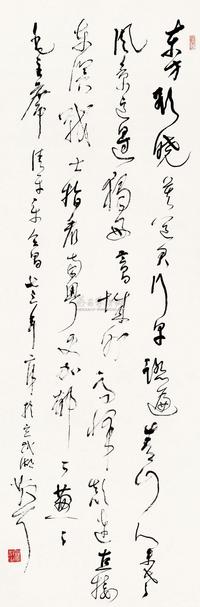 东方欲晓莫道君行早踏遍青山人未老
风景这边独好会昌城外高峰颠连直接
东溟战士指看南粤更加郁々葱々
毛主席清平乐会昌 年 于玄武湖 散耳